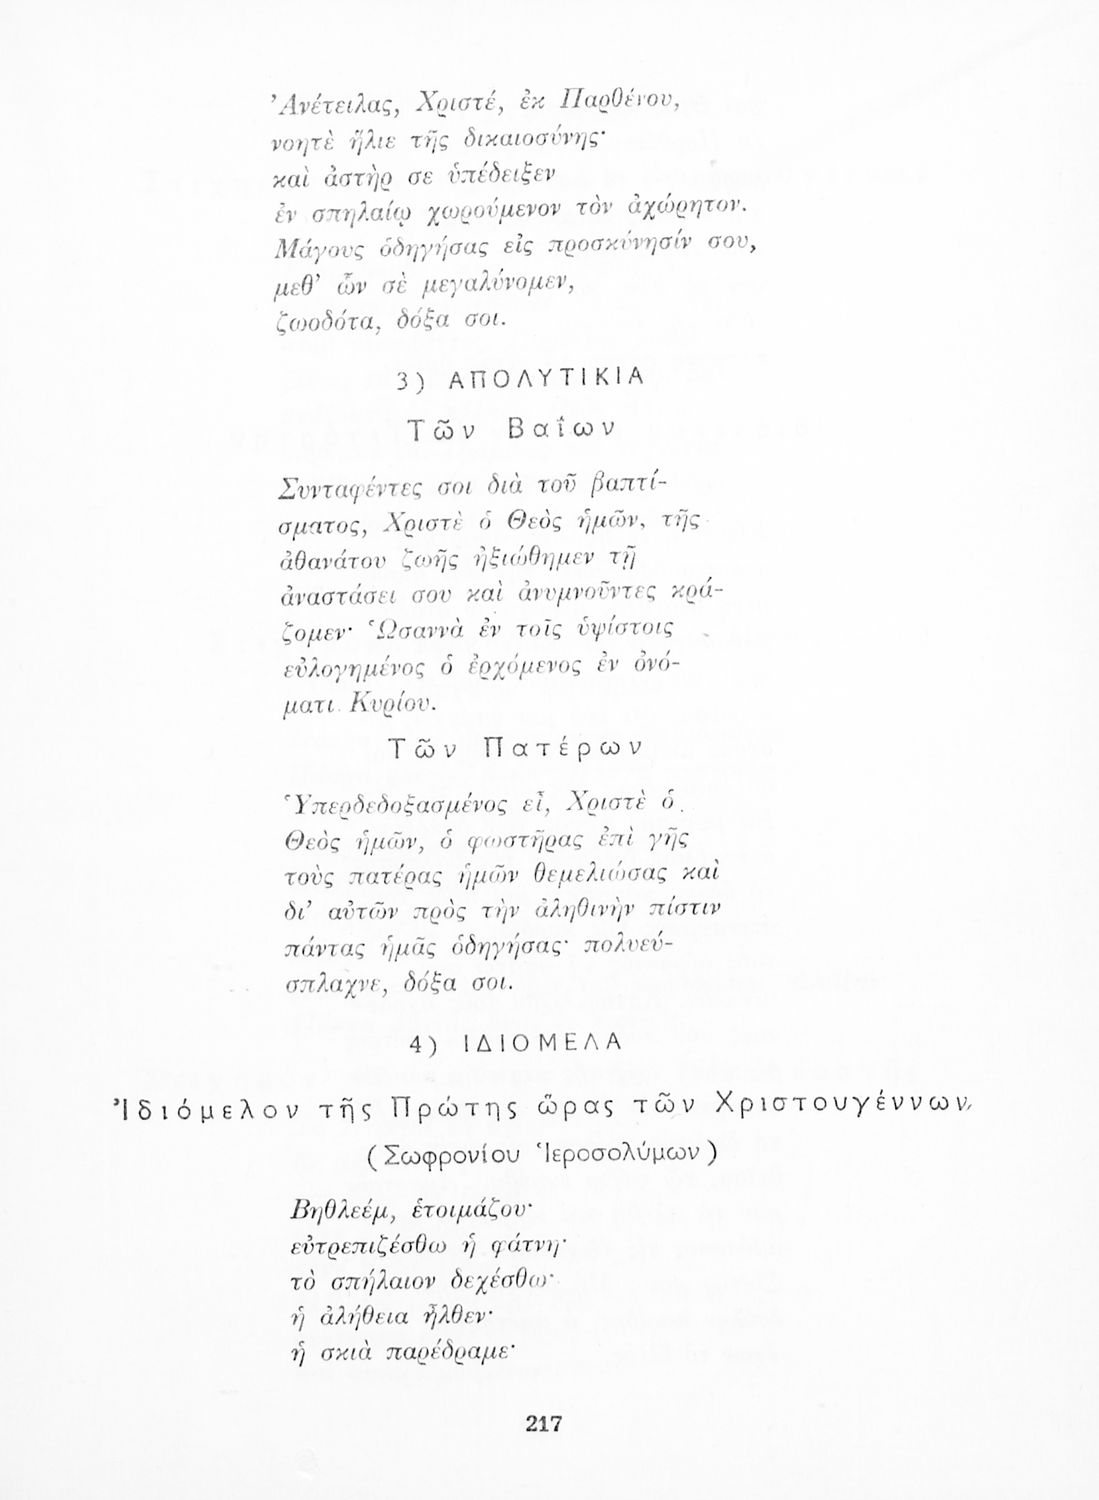 Ἀνέτειλας, Χριστέ, ἐκ Παρθένου,
νοητὲ ἥλιε τῆς δικαιοσύνης·
καὶ ἀστὴρ σε ὑπέδειξεν
ἐν σπηλαίῳ χωρούμενον τὸν ἀχώρητον.
Μάγους ὁδηγήσας εἰς προσκύνησίν σου,
μεθ’ ὧν σὲ μεγαλύνομεν,
ζωοδότα, δόξα σοι.
3) ΑΠΟΛΥΤΙΚΙΑ
Τῶν Βαΐων
Συνταφέντες σοι διὰ τοῦ βαπτί-
σματος, Χριστὲ ὁ Θεὸς ἡμῶν, τῆς
ἀθανάτου ζωῆς ἠξιώθημεν τῇ
ἀναστάσει σου καὶ ἀνυμνοῦντες κρά-
ζομεν· Ὡσαννὰ ἐν τοῖς ὑψίστοις
εὐλογημένος ὁ ἐρχόμενος ἐν ὀνό-
ματι Κυρίου.
Τῶν Πατέρων
Ὑπερδεδοξασμένος εἶ, Χριστὲ ὁ
Θεὸς ἡμῶν, ὁ φωστῆρας ἐπὶ γῆς
τοὺς πατέρας ἡμῶν θεμελιώσας καὶ
δι’ αὐτῶν πρὸς τὴν ἀληθινὴν πίστιν
πάντας ἡμᾶς ὁδηγήσας· πολυεύ-
σπλαχνε, δόξα σοι.
4) ΙΔΙΟΜΕΛΑ
Ἰδιόμελον τῆς Πρώτης ὥρας τῶν Χριστουγέννων,
(Σωφρονίου Ἱεροσολύμων)
Βηθλεέμ, ἑτοιμάζου·
εὐτρεπιζέσθω ἡ φάτνη·
τὸ σπήλαιον δεχέσθω·
ἡ ἀλήθεια ἦλθεν·
ἡ σκιὰ παρέδραμε·
217